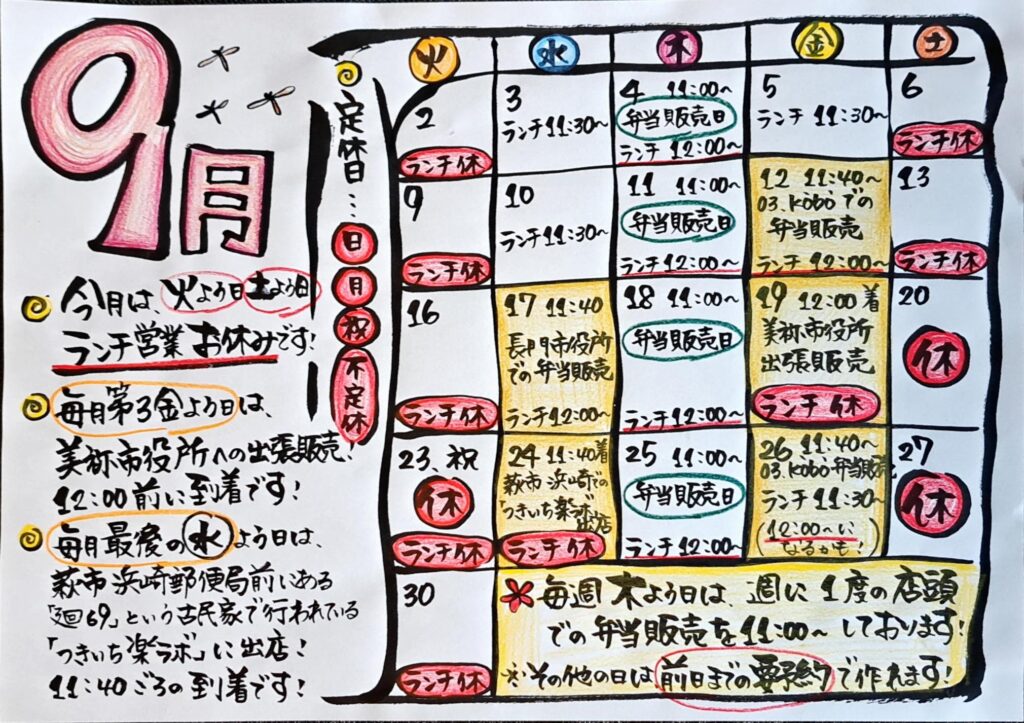 9月
今月は、火よう日土よう日
ランチ営業お休みです!
毎月第3金よう日は、
美祢市役所への出張販売!
12:00前に到着です!
毎月最後の水よう日は、
萩市浜崎郵便局前にある
「廻69」という古民家で行われている
「つきいち楽ラボ」に出店!
11:40ごろの到着です!
定休日…
日
月
祝
不定休
火 水 木 金 土
2
ランチ休
3
ランチ11:30～
4 11:00～
弁当販売日
ランチ 12:00～
5
ランチ11:30～
6
ランチ休
9
ランチ休
10
ランチ11:30～
11 11:00～
弁当販売日
ランチ12:00～
12 11:40～
03.koboでの
弁当販売
ランチ12:00～
13
ランチ休
16
ランチ休
17 11:40
長門市役所
での弁当販売
ランチ12:00～
18 11:00～
弁当販売日
ランチ12:00～
19 12:00着
美祢市役所
出張販売
ランチ休
20
休
23、祝
休
ランチ休
24 11:40着
萩市浜崎での
「つきいち楽ラボ」
出店
ランチ休
25 11:00～
弁当販売日
ランチ12:00～
26 11:40～
03.kobo弁当販売
ランチ11:30～
(12:00～に
なるかも!)
27
休
30
ランチ休
* 毎週木よう日は、週に1度の店頭
での弁当販売を11:00～しております!
※その他の日は前日までの要予約で作れます!